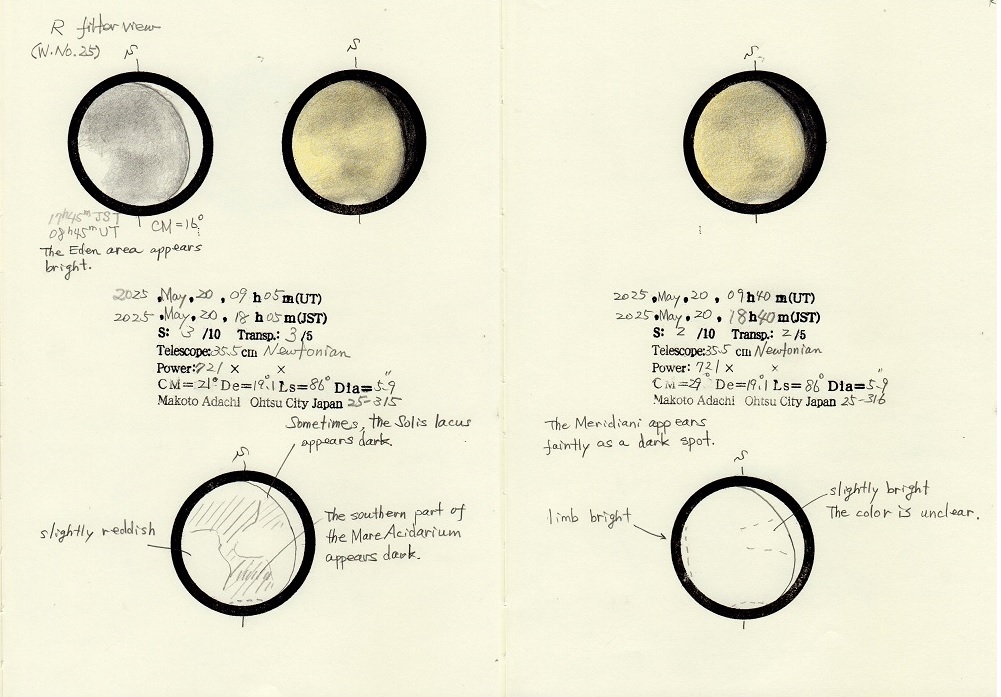 R filter view
(W.No.25)
S
S
17h45m JST
08h45m UT
CM=16°
The Eden area appears
bright.
2025 .May.20 , 09 h 05 m(UT)
2025 .May.20 , 18 h 05 m(JST)
S: 3 /10 Transp.: 3 /5
Telescope:35.5 cm Newtonian
Power:721 × ×
CM=21° De=19.1° Ls=86° Dia=5.9"
Makoto Adachi Ohtsu City Japan 25-315
Sometimes, the Solis lacus
appears dark.
S
slightly reddish
The southern part of
the Mare Acidarium
appears dark.
S
2025 .May.20 , 09 h 40 m(UT)
2025 .May.20 , 18 h 40 m(JST)
S: 2 /10 Transp.: 2 /5
Telescope:35.5 cm Newtonian
Power: 721 × ×
CM=29° De=19.1° Ls=86° Dia=5.9"
Makoto Adachi Ohtsu City Japan 25-316
The Meridiani appears
faintly as a dark spot.
S
limb bright
slightly bright
The color is unclear.